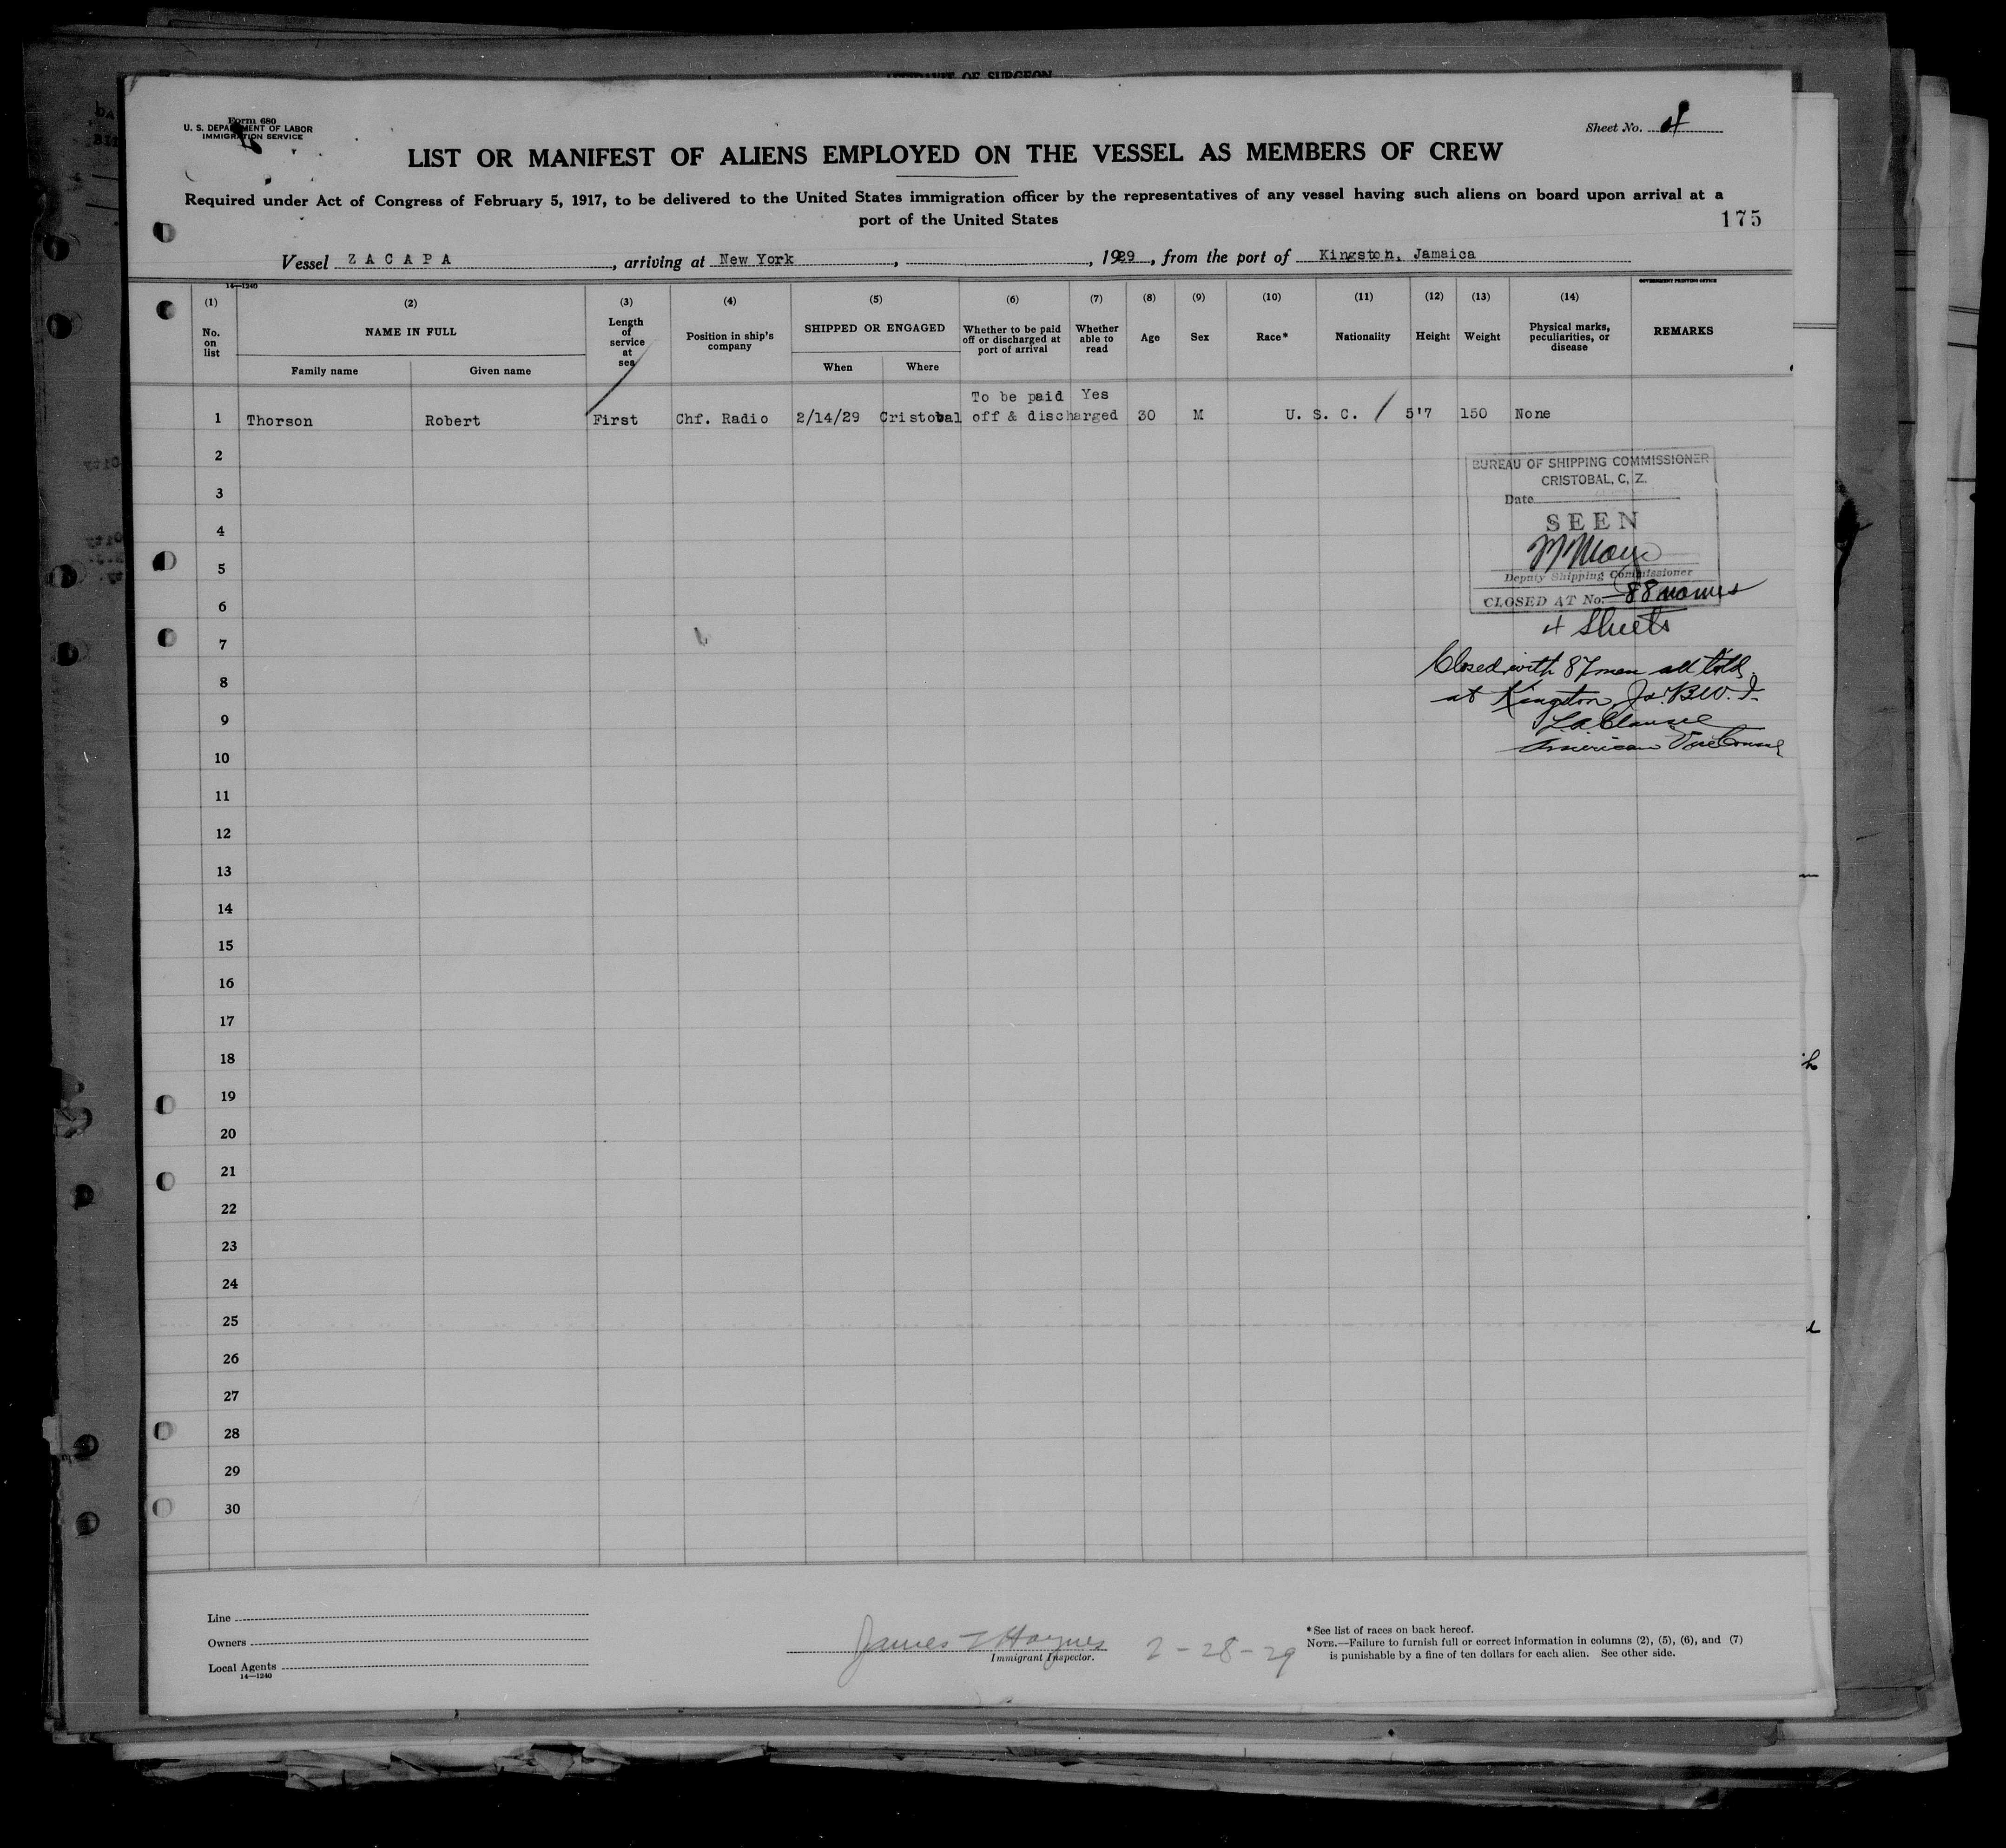 AFFIDAVIT OF SURGEON
Form 680
U. S. DEPARTMENT OF LABOR
IMMIGRATION SERVICE
Sheet No. 4
LIST OR MANIFEST OF ALIENS EMPLOYED ON THE VESSEL AS MEMBERS OF CREW
Required under Act of Congress of February 5, 1917, to be delivered to the United States immigration officer by the representatives of any vessel having such aliens on board upon arrival at a
port of the United States
175
Vessel ZACAPA, arriving at New York, , 1929, from the port of Kingston, Jamaica
14—1240
GOVERNMENT PRINTING OFFICE
(1) (2) (3) (4) (5) (6) (7) (8) (9) (10) (11) (12) (13) (14)
No. on list NAME IN FULL Length of service at sea Position in ship's company SHIPPED OR ENGAGED Whether to be paid off or discharged at port of arrival Whether able to read Age Sex Race* Nationality Height Weight Physical marks, peculiarities, or disease REMARKS
Family name Given name When Where
To be paid Yes
1 Thorson Robert First Chf. Radio 2/14/29 Cristobal off & discharged 30 M U. S. C. / 5'7 150 None
2
BUREAU OF SHIPPING COMMISSIONER
CRISTOBAL, C. Z.
3
Date
SEEN
4
5
Deputy Shipping Commissioner
CLOSED AT No. 88 names
6
4 Sheets
7
Closed with 87 men all told
8
at Kingston, Ja. B.W.I.
9
American Vice Consul
10
11
12
13
14
15
16
17
18
19
20
21
22
23
24
25
26
27
28
29
30
Line
Owners
Local Agents
14—1240
James T Haynes 2-28-29
Immigrant Inspector.
*See list of races on back hereof.
NOTE.—Failure to furnish full or correct information in columns (2), (5), (6), and (7)
is punishable by a fine of ten dollars for each alien. See other side.